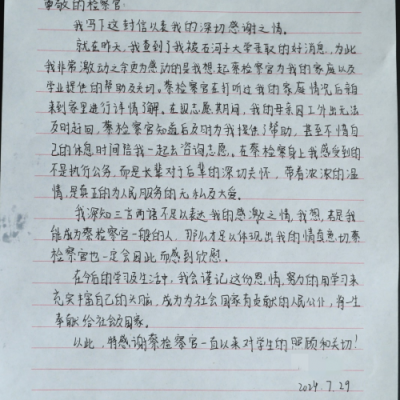 尊敬的检察官:
我写下这封信以表我的深切感谢之情。
就在昨天,我查到了我被石河子大学录取的好消息,为此
我非常激动之余更为感动的是我想起蔡检察官为我的家庭以及
学业提供的帮助及关切。蔡检察官在打听过我的家庭情况后白
来到家里进行详情了解。在填志愿期间,我的母亲因工外出无法
及时赶回,蔡检察官知道后及时为我提供了帮助,甚至不惜自
己的休息时间陪我一起去咨询志愿。在蔡检察身上我感受到的
不是执行公务,而是长辈对于后辈的深切关怀,带着浓浓的温
情,是真正的为人民服务的无私及大爱。
我深知三言两语不足以表达我的感激之情,我想,若是我
能成为蔡检察官一般的人,那么才足以体现出我的情真意切蔡
检察官也一定会因此而感到欣慰。
在今后的学习及生活中,我会谨记这份恩情,努力的用学习来
充实丰富自己的头脑,成为为社会国家有贡献的人民公仆,将一生
奉献给社会国家。
以此,特感谢蔡检察官一直以来对学生的照顾和关切!
2024.7.29